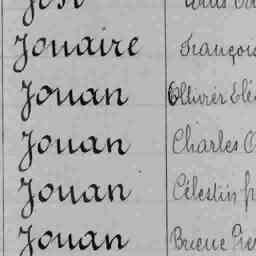 Jouaire François
Jouan Ollivier
Jouan Charles
Jouan Célestin
Jouan Brieuc